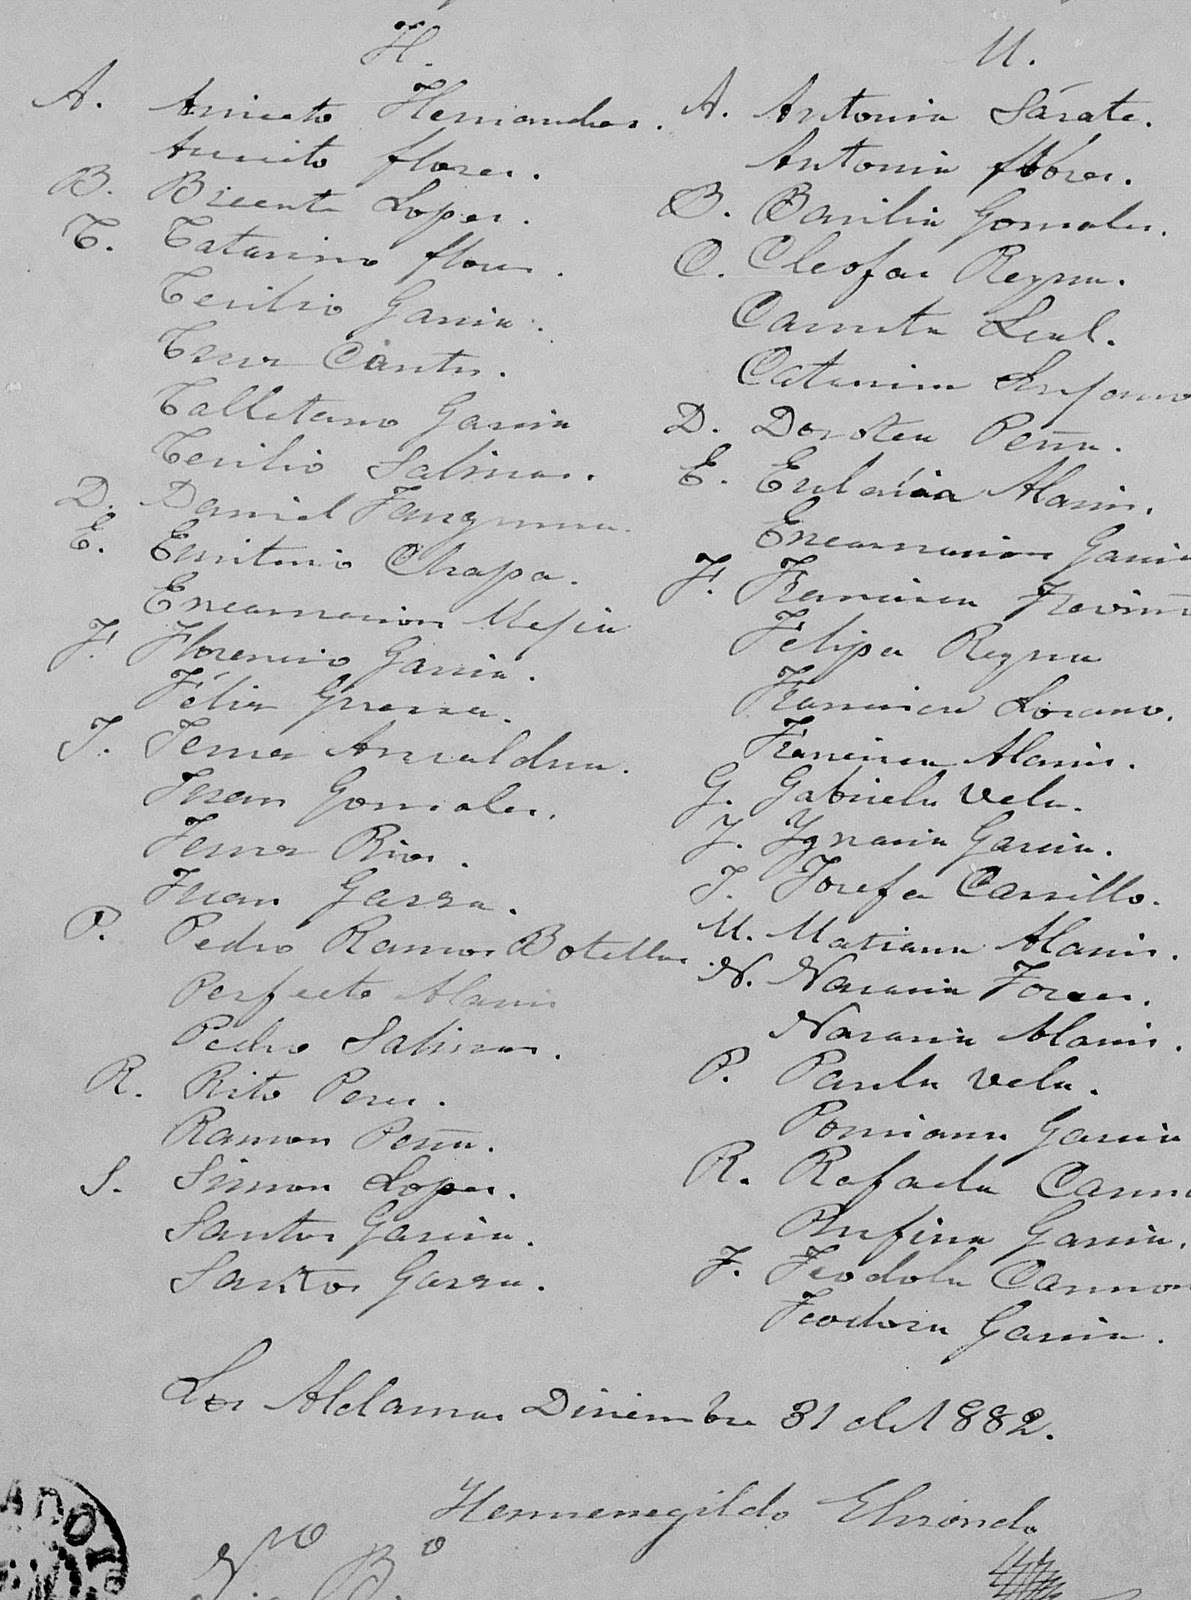 H.
A. Aniceto Hernandes.
Aniceto flores.
B. Bicente Lopes.
C. Catarino flores.
Cecilio Garcia.
Cruz Cantu.
Calletano Garcia
Cecilio Salinas.
D. Daniel
E. Emiterio Chapa.
Encarnacion Mejia
F. Florencio Garcia.
Félix Guerra.
J. Jesus Ansaldua.
Juan Gonzales.
Jesus Rios.
Juan Garza.
P. Pedro Ramos Botello.
Perfecto Alanis
Pedro Salinas.
R. Rito Peres.
Ramon Peña.
S. Simon Lopes.
Santos Garcia.
Santos Garza.
M.
A. Antonia Sárate.
Antonia flores.
B. Basilia Gonzales.
C. Cleofas Reyna.
Leal.
Catarina
D. Dorotea Peña.
E. Eulalia Alanis.
Encarnacion Garcia
F. Francisca Treviñ
Felipa Reyna
Francisca Lozano.
Francisca Alanis.
G. Gabriela Vela.
Y. Ygnacia Garcia.
J. Josefa Carrillo.
M. Matiana Alanis.
N. Nazaria
Nazaria Alanis.
P. Paula Vela.
Ponciana Garcia
R. Rafaela
Rufina Garcia.
T. Teodola
Teodora Garcia.
Los Aldamas Diciembre 31 de 1882.
Hermenegildo Elizondo
Vo Bo